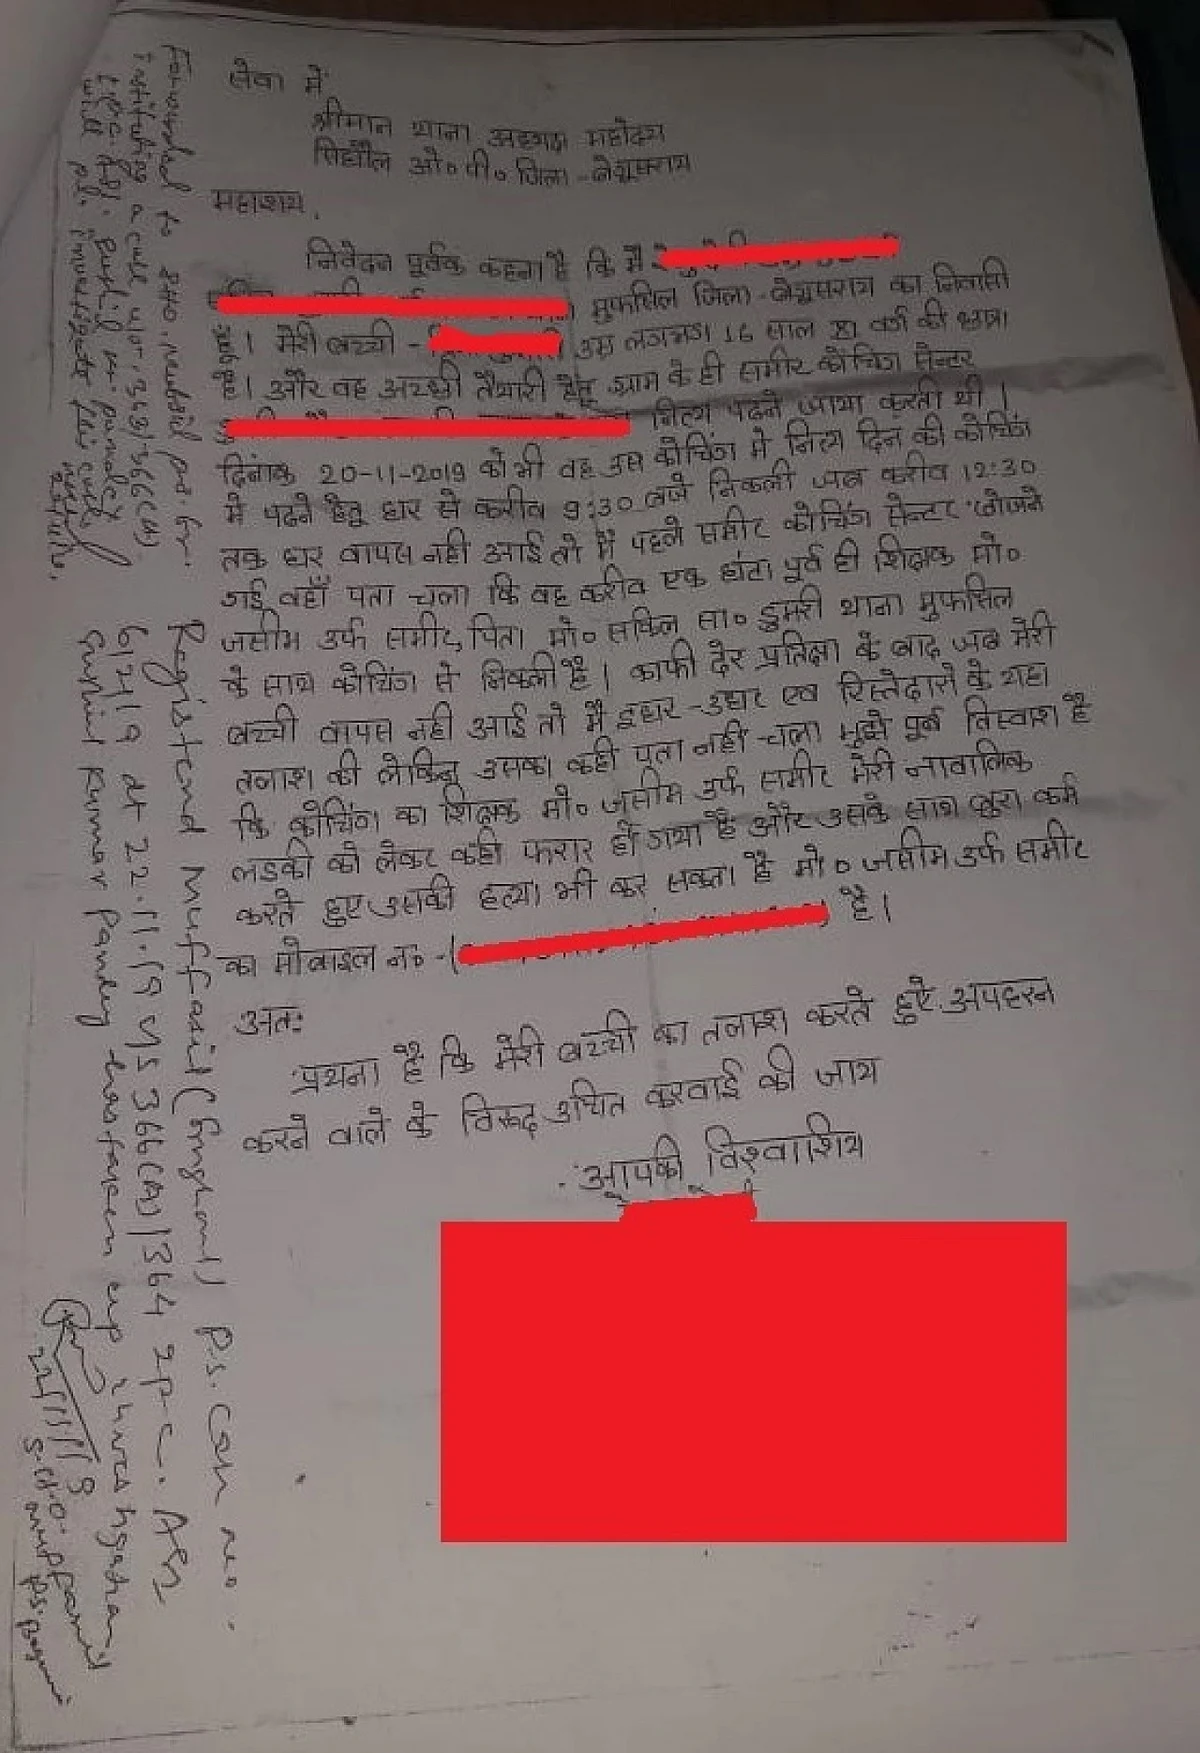 सेवा में
श्रीमान थाना अध्यक्ष महोदय
सिंघौल ओ० पी० जिला - बेगूसराय
महाशय,
निवेदन पूर्वक कहना है कि मैं
मुफसिल जिला - बेगूसराय का निवासी
हूँ। मेरी बच्ची - उम्र लगभग 16 साल वर्ग की छात्रा
है। और वह अच्छी तैयारी हेतू ग्राम के ही समीर कोचिंग सेन्टर
नित्य पढने जाया करती थी।
दिनांक 20-11-2019 को भी वह उस कोचिंग मे नित्य दिन की कोचिंग
मे पढने हेतू घर से करीव 9:30 बजे निकली जब करीव 12:30
तक घर वापस नही आई तो मैं पहले समीर कोचिंग सेन्टर खोजने
गई वहाँ पता चला कि वह करीव एक घंटा पूर्व ही शिक्षक मो०
जसीम उर्फ समीर, पिता मो० सकिल सा० डुमरी थाना मुफसिल
के साथ कोचिंग से निकली है। काफी देर प्रतिक्षा के बाद जब मेरी
बच्ची वापस नही आई तो मैं इधर-उधर एव रिस्तेदारो के यहा
तलाश की लेकिन उसका कही पता नही चला मुझे पूर्ण विस्वाश है
कि कोचिंग का शिक्षक मो० जसीम उर्फ समीर मेरी नावालिक
लडकी को लेकर कही फरार हो गया है और उसके साथ बुरा कर्म
करते हुए उसकी हत्या भी कर सकता है मो० जसीम उर्फ समीर
का मोबाइल न० -( ) है।
अतः
प्रथना है कि मेरी बच्ची का तलाश करते हुए अपहरन
करने वाले के विरूद्ध उचित करवाई की जाय
आपकी विश्वाशिय
Forwarded to SHO. Muffasil P.S. for
instituting a case u/s. 363/366(A)
I.P.C. ASI. Sushil Kr. Pandey
will P.S. investigate this case
Registered Muffasil (Singhaul) P.S. Case no.
624/19 dt 22.11.19 u/s 366(A)/364 IPC. ASI
Sushil Kumar Pandey has taken up investigation
22/11/19
S.H.O. Muffasil
P.S. Begusarai